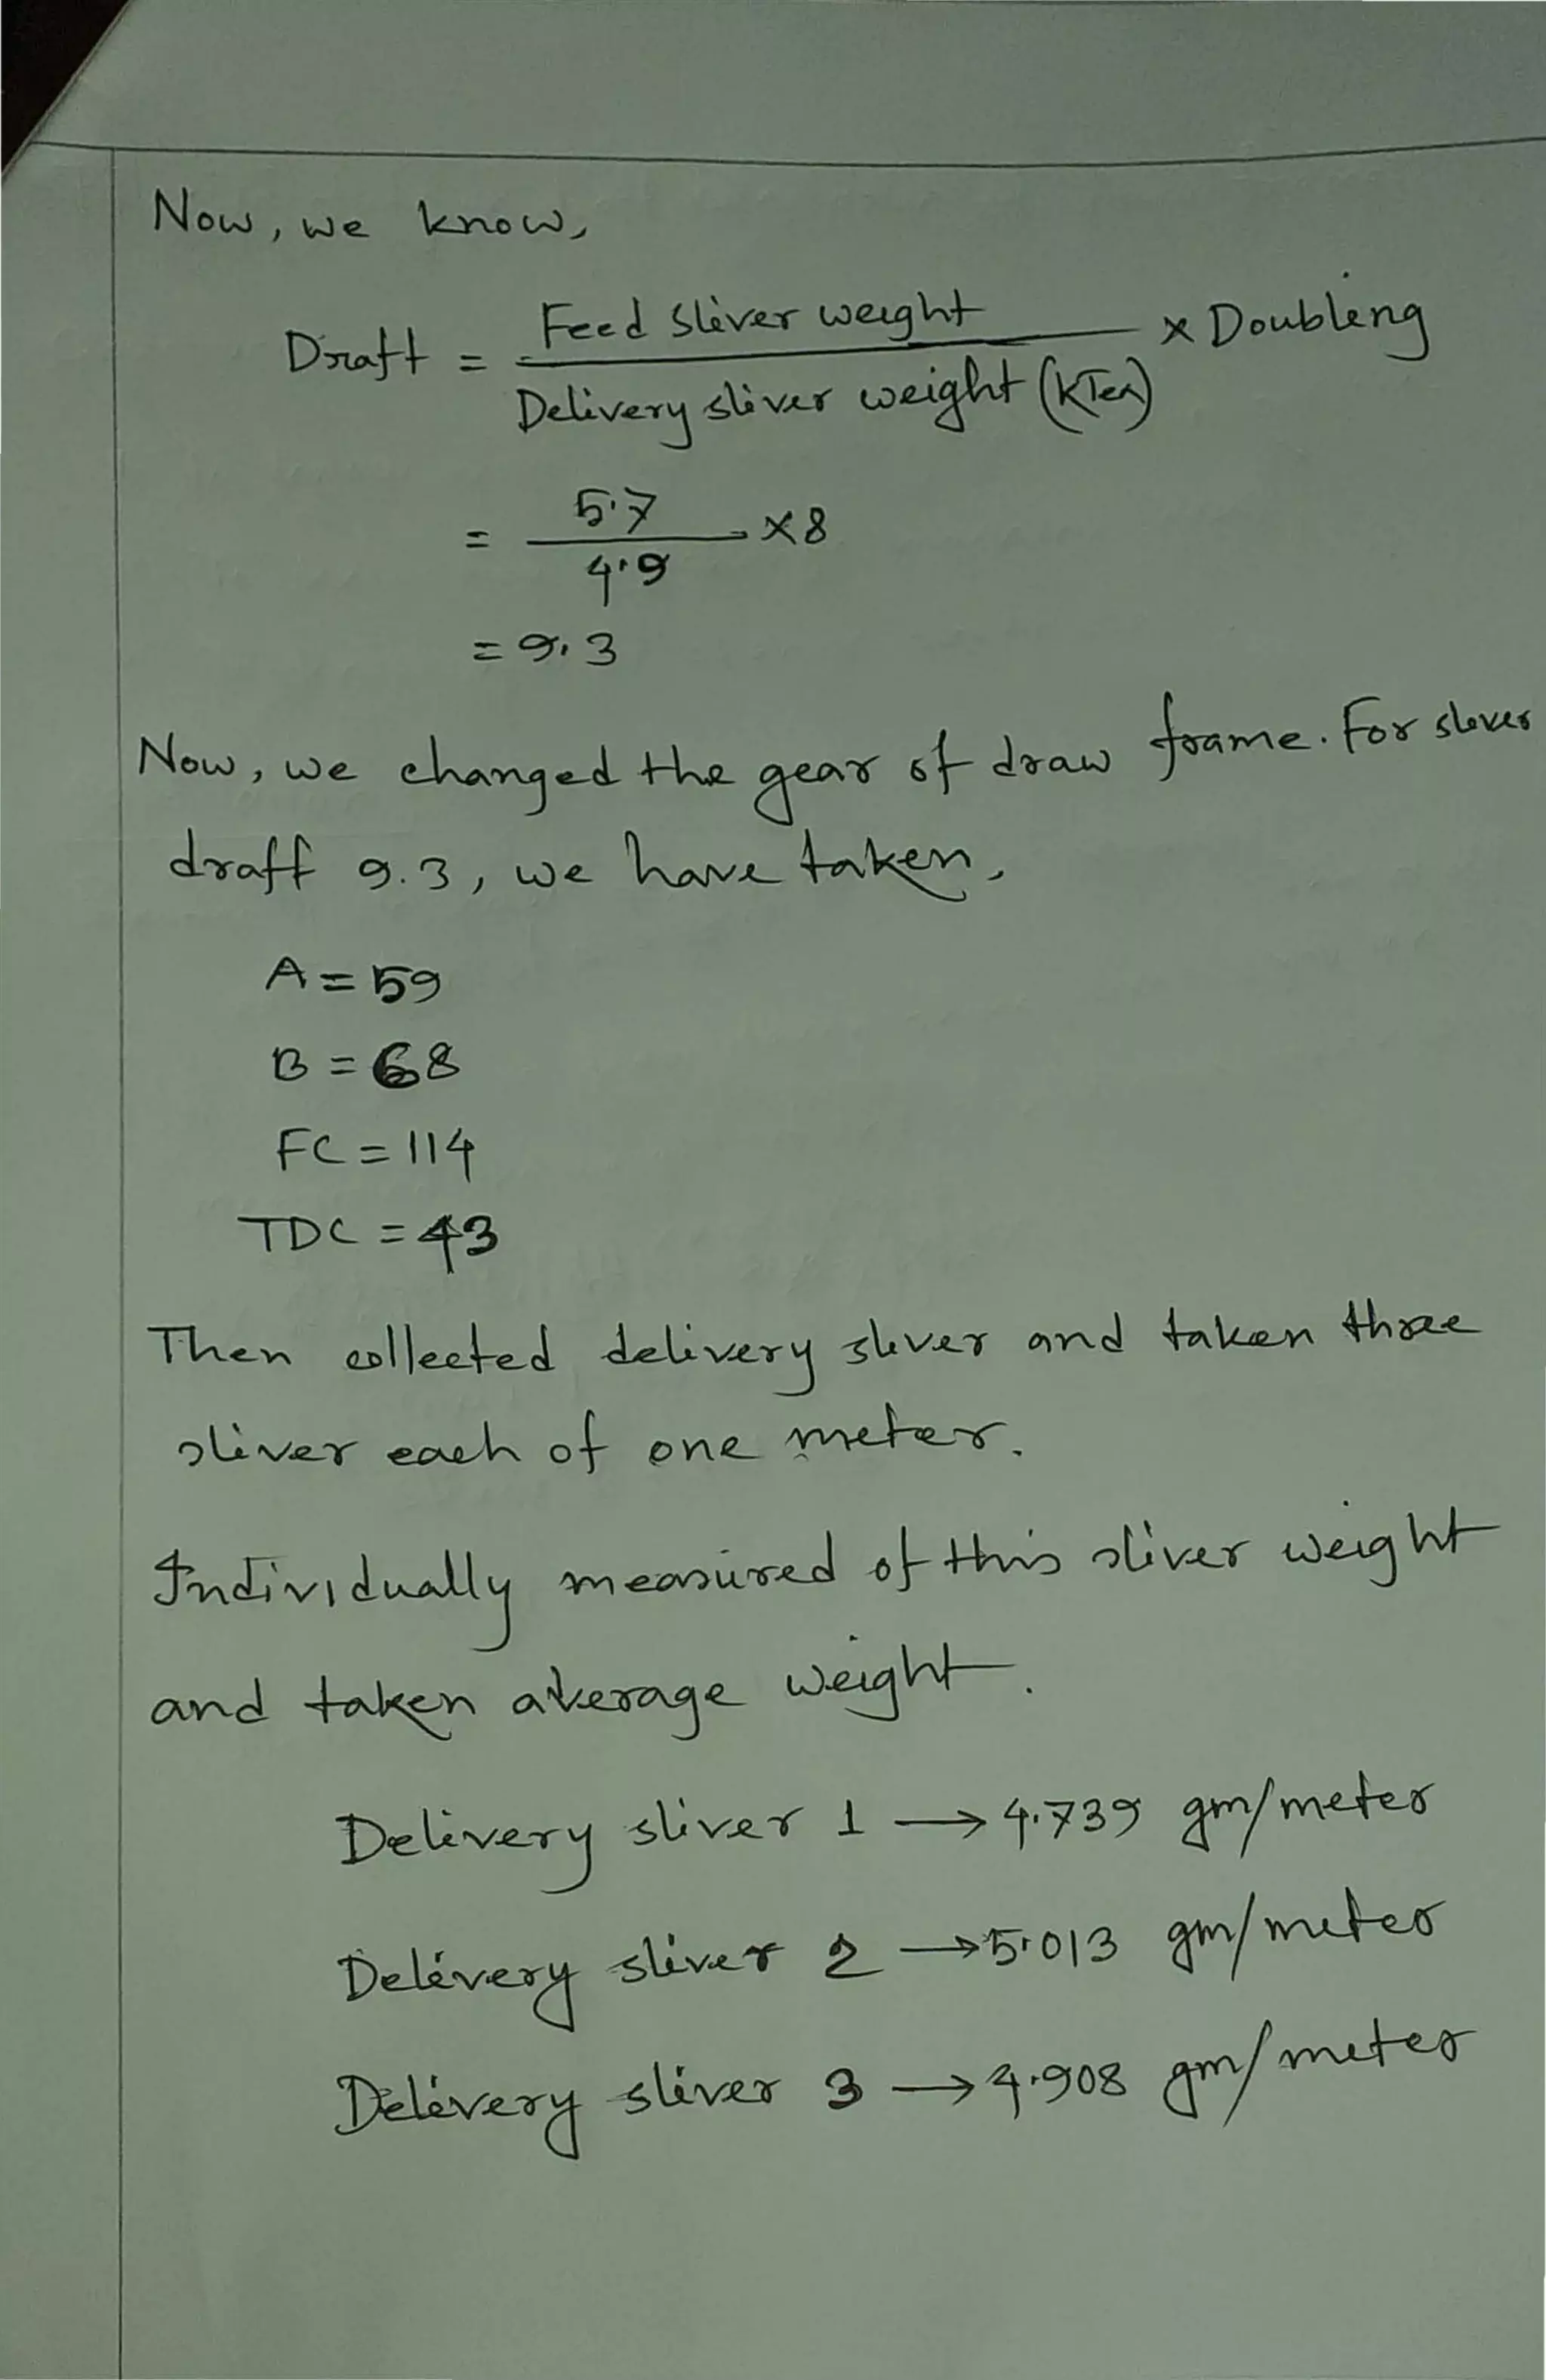 Now, we know,
Draft = Feed sliver weight / Delivery sliver weight (KTex) × Doubling
= 5.7 / 4.9 × 8
= 9.3
Now, we changed the gear of draw frame. For sliver
draft 9.3, we have taken,
A = 59
B = 68
FC = 114
TDC = 43
Then collected delivery sliver and taken three
sliver each of one meter.
Individually measured of this sliver weight
and taken average weight.
Delivery sliver 1 → 4.739 gm/meter
Delivery sliver 2 → 5.013 gm/meter
Delivery sliver 3 → 4.908 gm/meter